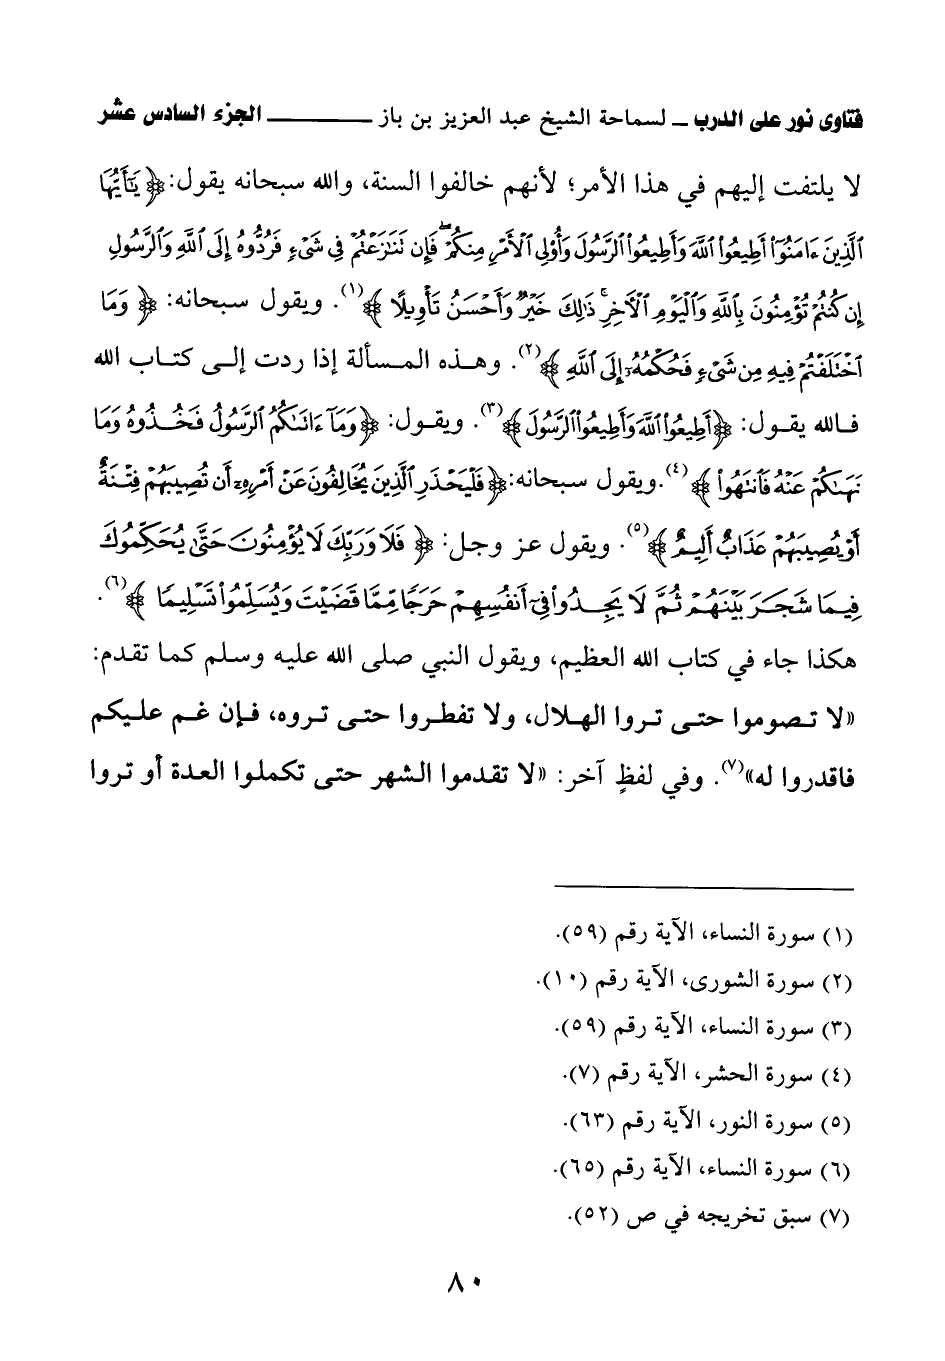 فتاوى نور على الدرب ـ لسماحة الشيخ عبد العزيز بن باز ـــــــــــ الجزء السادس عشر
لا يلتفت إليهم في هذا الأمر؛ لأنهم خالفوا السنة، والله سبحانه يقول: ﴿يَٰٓأَيُّهَا
ٱلَّذِينَ ءَامَنُوٓا۟ أَطِيعُوا۟ ٱللَّهَ وَأَطِيعُوا۟ ٱلرَّسُولَ وَأُو۟لِى ٱلْأَمْرِ مِنكُمْ ۖ فَإِن تَنَٰزَعْتُمْ فِى شَىْءٍ فَرُدُّوهُ إِلَى ٱللَّهِ وَٱلرَّسُولِ
إِن كُنتُمْ تُؤْمِنُونَ بِٱللَّهِ وَٱلْيَوْمِ ٱلْءَاخِرِ ۚ ذَٰلِكَ خَيْرٌ وَأَحْسَنُ تَأْوِيلًا﴾(١). ويقول سبحانه: ﴿وَمَا
ٱخْتَلَفْتُمْ فِيهِ مِن شَىْءٍ فَحُكْمُهُۥٓ إِلَى ٱللَّهِ﴾(٢). وهذه المسألة إذا ردت إلى كتاب الله
فالله يقول: ﴿أَطِيعُوا۟ ٱللَّهَ وَأَطِيعُوا۟ ٱلرَّسُولَ﴾(٣). ويقول: ﴿وَمَآ ءَاتَىٰكُمُ ٱلرَّسُولُ فَخُذُوهُ وَمَا
نَهَىٰكُمْ عَنْهُ فَٱنتَهُوا۟﴾(٤). ويقول سبحانه: ﴿فَلْيَحْذَرِ ٱلَّذِينَ يُخَالِفُونَ عَنْ أَمْرِهِۦٓ أَن تُصِيبَهُمْ فِتْنَةٌ
أَوْ يُصِيبَهُمْ عَذَابٌ أَلِيمٌ﴾(٥). ويقول عز وجل: ﴿فَلَا وَرَبِّكَ لَا يُؤْمِنُونَ حَتَّىٰ يُحَكِّمُوكَ
فِيمَا شَجَرَ بَيْنَهُمْ ثُمَّ لَا يَجِدُوا۟ فِىٓ أَنفُسِهِمْ حَرَجًا مِّمَّا قَضَيْتَ وَيُسَلِّمُوا۟ تَسْلِيمًا﴾(٦).
هكذا جاء في كتاب الله العظيم، ويقول النبي صلى الله عليه وسلم كما تقدم:
«لا تصوموا حتى تروا الهلال، ولا تفطروا حتى تروه، فإن غم عليكم
فاقدروا له»(٧). وفي لفظٍ آخر: «لا تقدموا الشهر حتى تكملوا العدة أو تروا
(١) سورة النساء، الآية رقم (٥٩).
(٢) سورة الشورى، الآية رقم (١٠).
(٣) سورة النساء، الآية رقم (٥٩).
(٤) سورة الحشر، الآية رقم (٧).
(٥) سورة النور، الآية رقم (٦٣).
(٦) سورة النساء، الآية رقم (٦٥).
(٧) سبق تخريجه في ص (٥٢).
٨٠